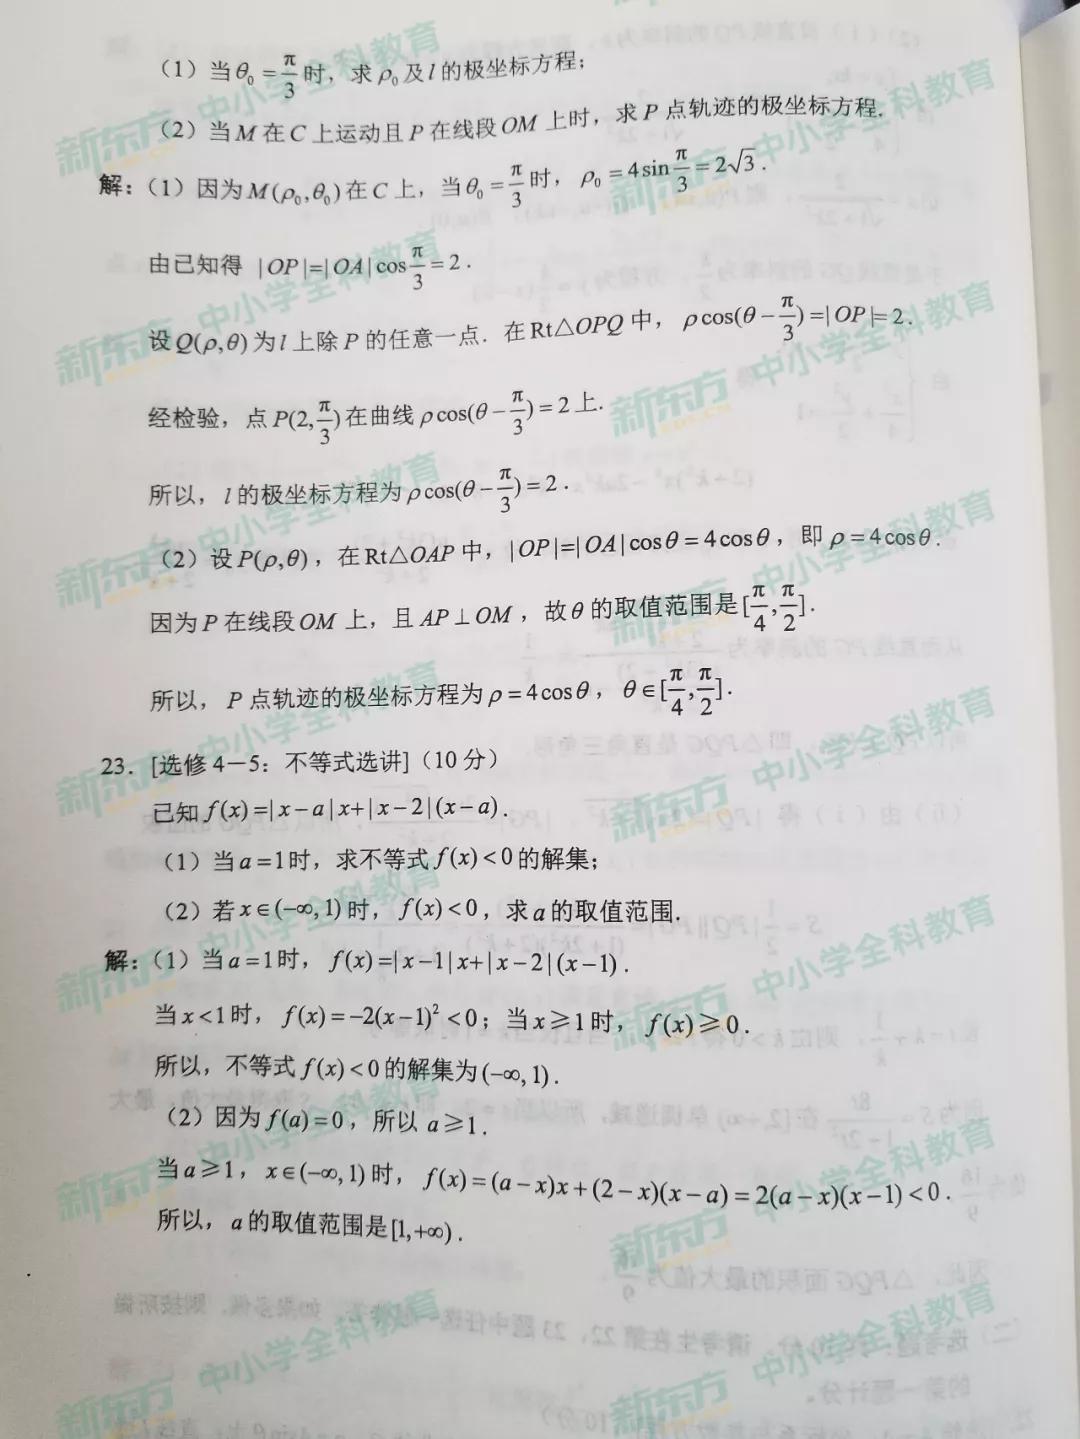 (1) 当θ₀ = π/3 时，求ρ₀及l的极坐标方程；
(2) 当M在C上运动且P在线段OM上时，求P点轨迹的极坐标方程.
解：(1) 因为M(ρ₀,θ₀)在C上，当θ₀ = π/3 时，ρ₀ = 4sin π/3 = 2√3 .
由已知得 |OP|=|OA|cos π/3 = 2 .
设Q(ρ,θ)为l上除P的任意一点. 在Rt△OPQ中，ρcos(θ − π/3) =|OP|= 2 .
经检验，点P(2, π/3)在曲线ρcos(θ − π/3) = 2上.
所以，l的极坐标方程为ρcos(θ − π/3) = 2 .
(2) 设P(ρ,θ)，在Rt△OAP中，|OP|=|OA|cosθ = 4cosθ，即 ρ = 4cosθ .
因为P在线段OM上，且AP⊥OM，故θ的取值范围是[π/4, π/2].
所以，P点轨迹的极坐标方程为ρ = 4cosθ，θ∈[π/4, π/2].
23. [选修4－5：不等式选讲]（10分）
已知f(x) =|x − a|x+|x − 2|(x − a).
(1) 当a =1时，求不等式f(x) < 0的解集；
(2) 若x∈(−∞, 1)时，f(x) < 0，求a的取值范围.
解：(1) 当a =1时，f(x) =|x −1|x+|x − 2|(x −1) .
当x <1时，f(x) = −2(x −1)² < 0；当x ≥1时，f(x) ≥ 0 .
所以，不等式f(x) < 0的解集为(−∞, 1) .
(2) 因为f(a) = 0，所以a ≥1.
当a ≥1，x∈(−∞, 1)时，f(x) = (a − x)x + (2 − x)(x − a) = 2(a − x)(x −1) < 0 .
所以，a的取值范围是[1, +∞) .
新东方 中小学全科教育